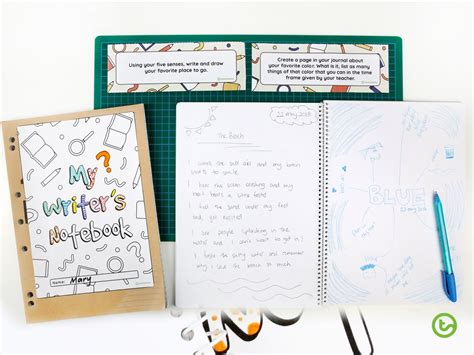 Using your five senses, write and draw
your favorite place to go.
Create a page in your journal about
your favorite color. What is it, list as many
things of that color that you can in the time
frame given by your teacher.
My
Writer's
Notebook
Name: Mary
22 May 2018
The Beach
I smell the salt air and my brain
wants to smile
I hear the waves crashing and my
heart
I feel the sand under my feet
and get excited
I see people splashing in the
water and I can't wait to get in!
I taste the salty water and remember
why I love the beach so much.
BLUE